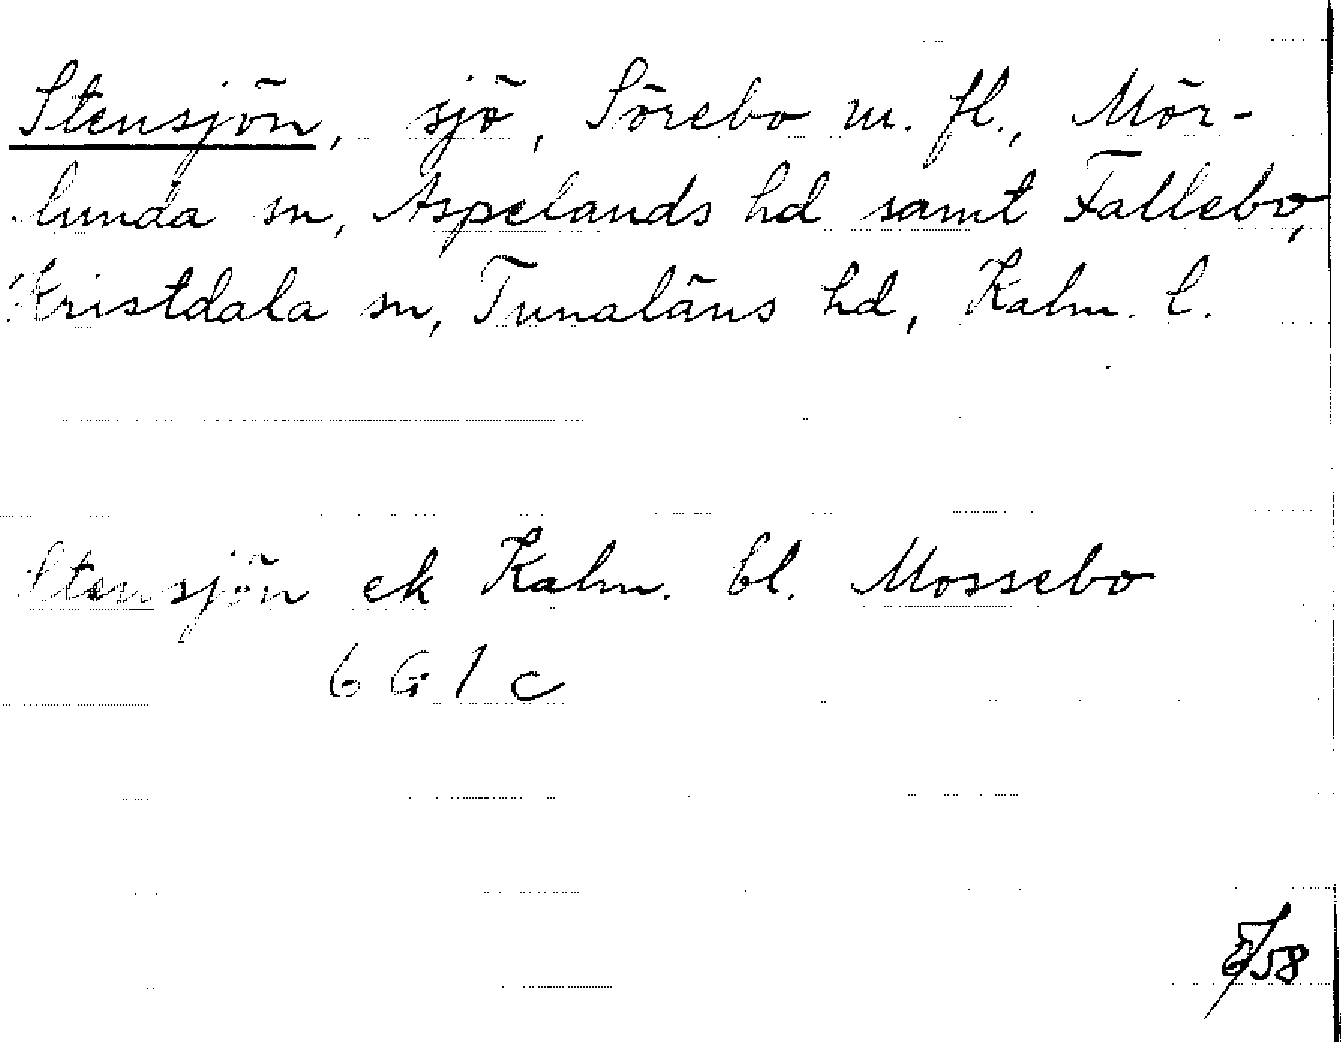 Stensjön, sjö, Sörebo m. fl., Mör-
lunda sn, Aspelands hd samt Fallebo,
Kristdala sn, Tunaläns hd, Kalm. l.
Stensjön ek Kalm. bl. Mossebo
6 G 1 c